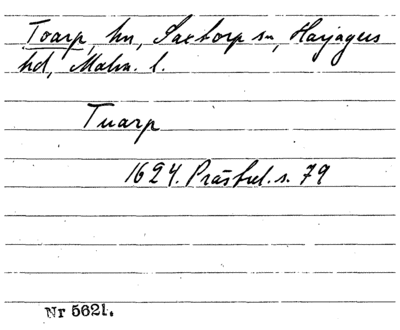 Toarp, hn, Saxtorp sn, Harjagers
hd, Malm. l.
Tuarp
1624. Prästrel. s. 79
Nr 5621.